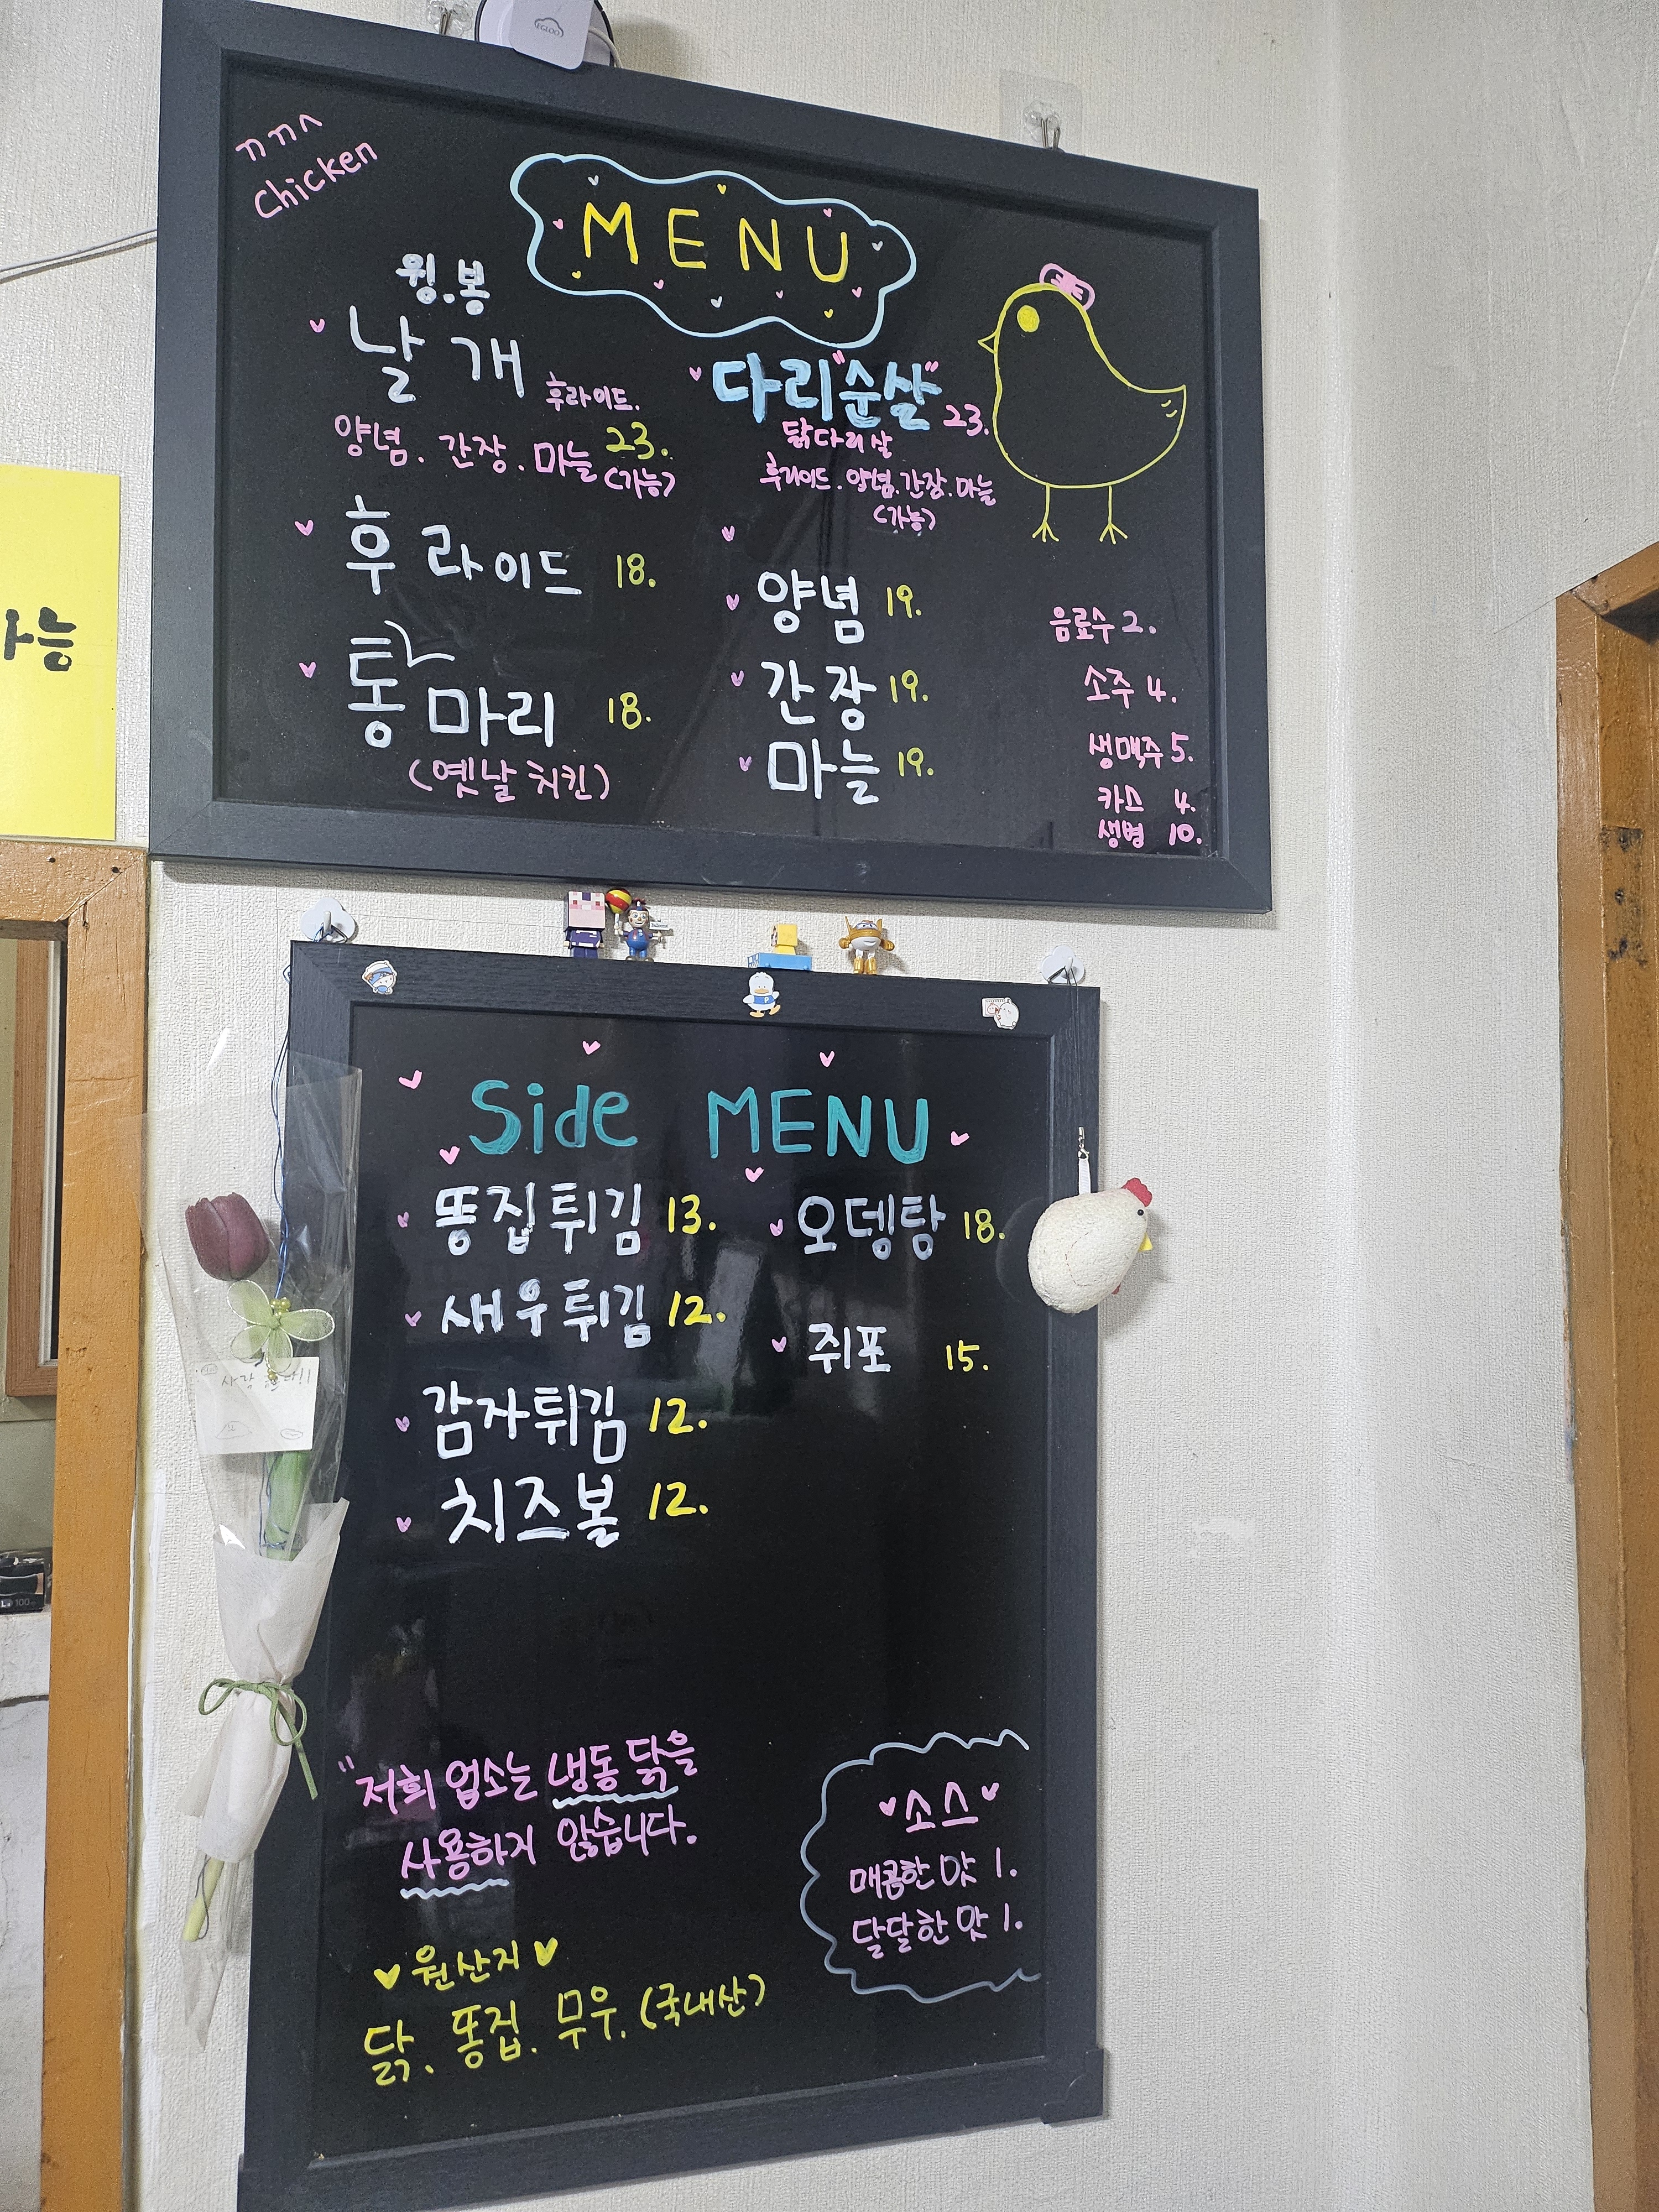 ㄲㄲㅅ
chicken
MENU
윙.봉
날개
후라이드.
양념. 간장. 마늘 23.
(가능)
후라이드 18.
통마리 18.
(옛날 치킨)
다리"순살" 23.
닭다리살
후라이드. 양념. 간장. 마늘
(가능)
양념 19.
간장 19.
마늘 19.
음료수 2.
소주 4.
생맥주 5.
카스 4.
생병 10.
Side MENU
똥집튀김 13.
새우튀김 12.
감자튀김 12.
치즈볼 12.
오뎅탕 18.
쥐포 15.
"저희 업소는 냉동 닭을
사용하지 않습니다.
원산지
닭. 똥집. 무우. (국내산)
소스
매콤한 맛 1.
달달한 맛 1.